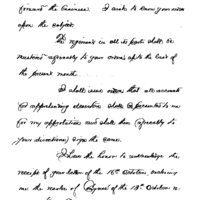 forward the business. I wish to know your views
upon the subject.
The regiment in all its parts shall be
mustered agreeably to your orders upto the last of
the present month.
I shall issue orders that all accounts
for apprehending deserters shall be presented to me
for my approbation and shall then (agreeably to
your directions) sign the same.
I have the honor to acknowledge the
receipt of your letter of the 15th October, enclosing
me the number of of the 13th October is